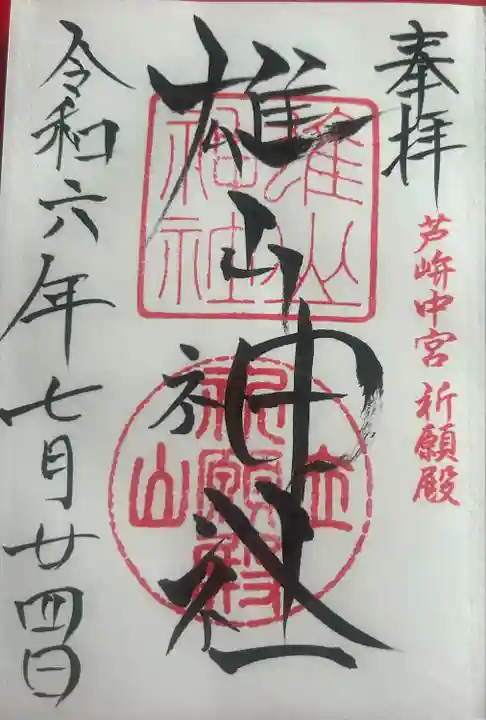 奉拝
芦峅中宮 祈願殿
雄山神社
雄山
神社
立山
祈願殿
令和六年七月廿四日